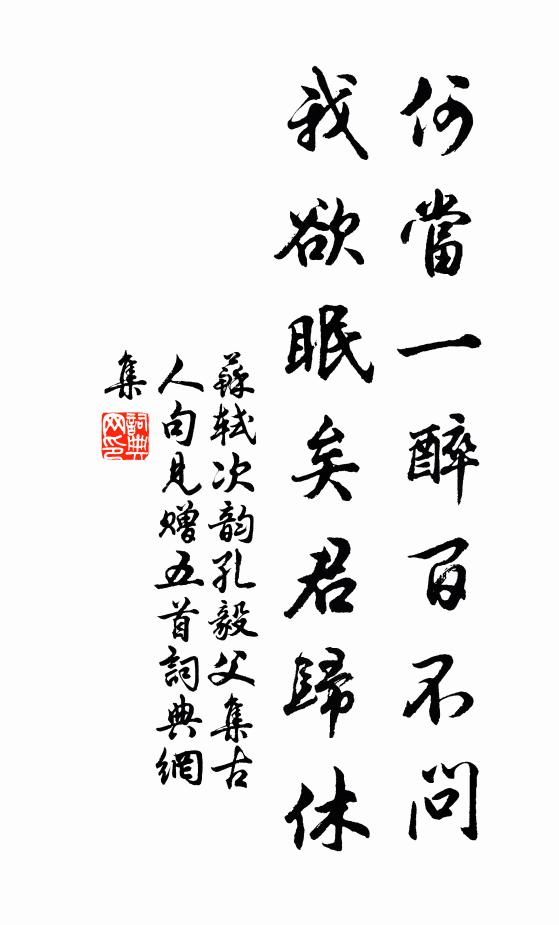 何當一醉百不問
我欲眠矣君歸休
蘇軾次韵孔毅父集古
人句見贈五首詞典網
集
詞典
网印